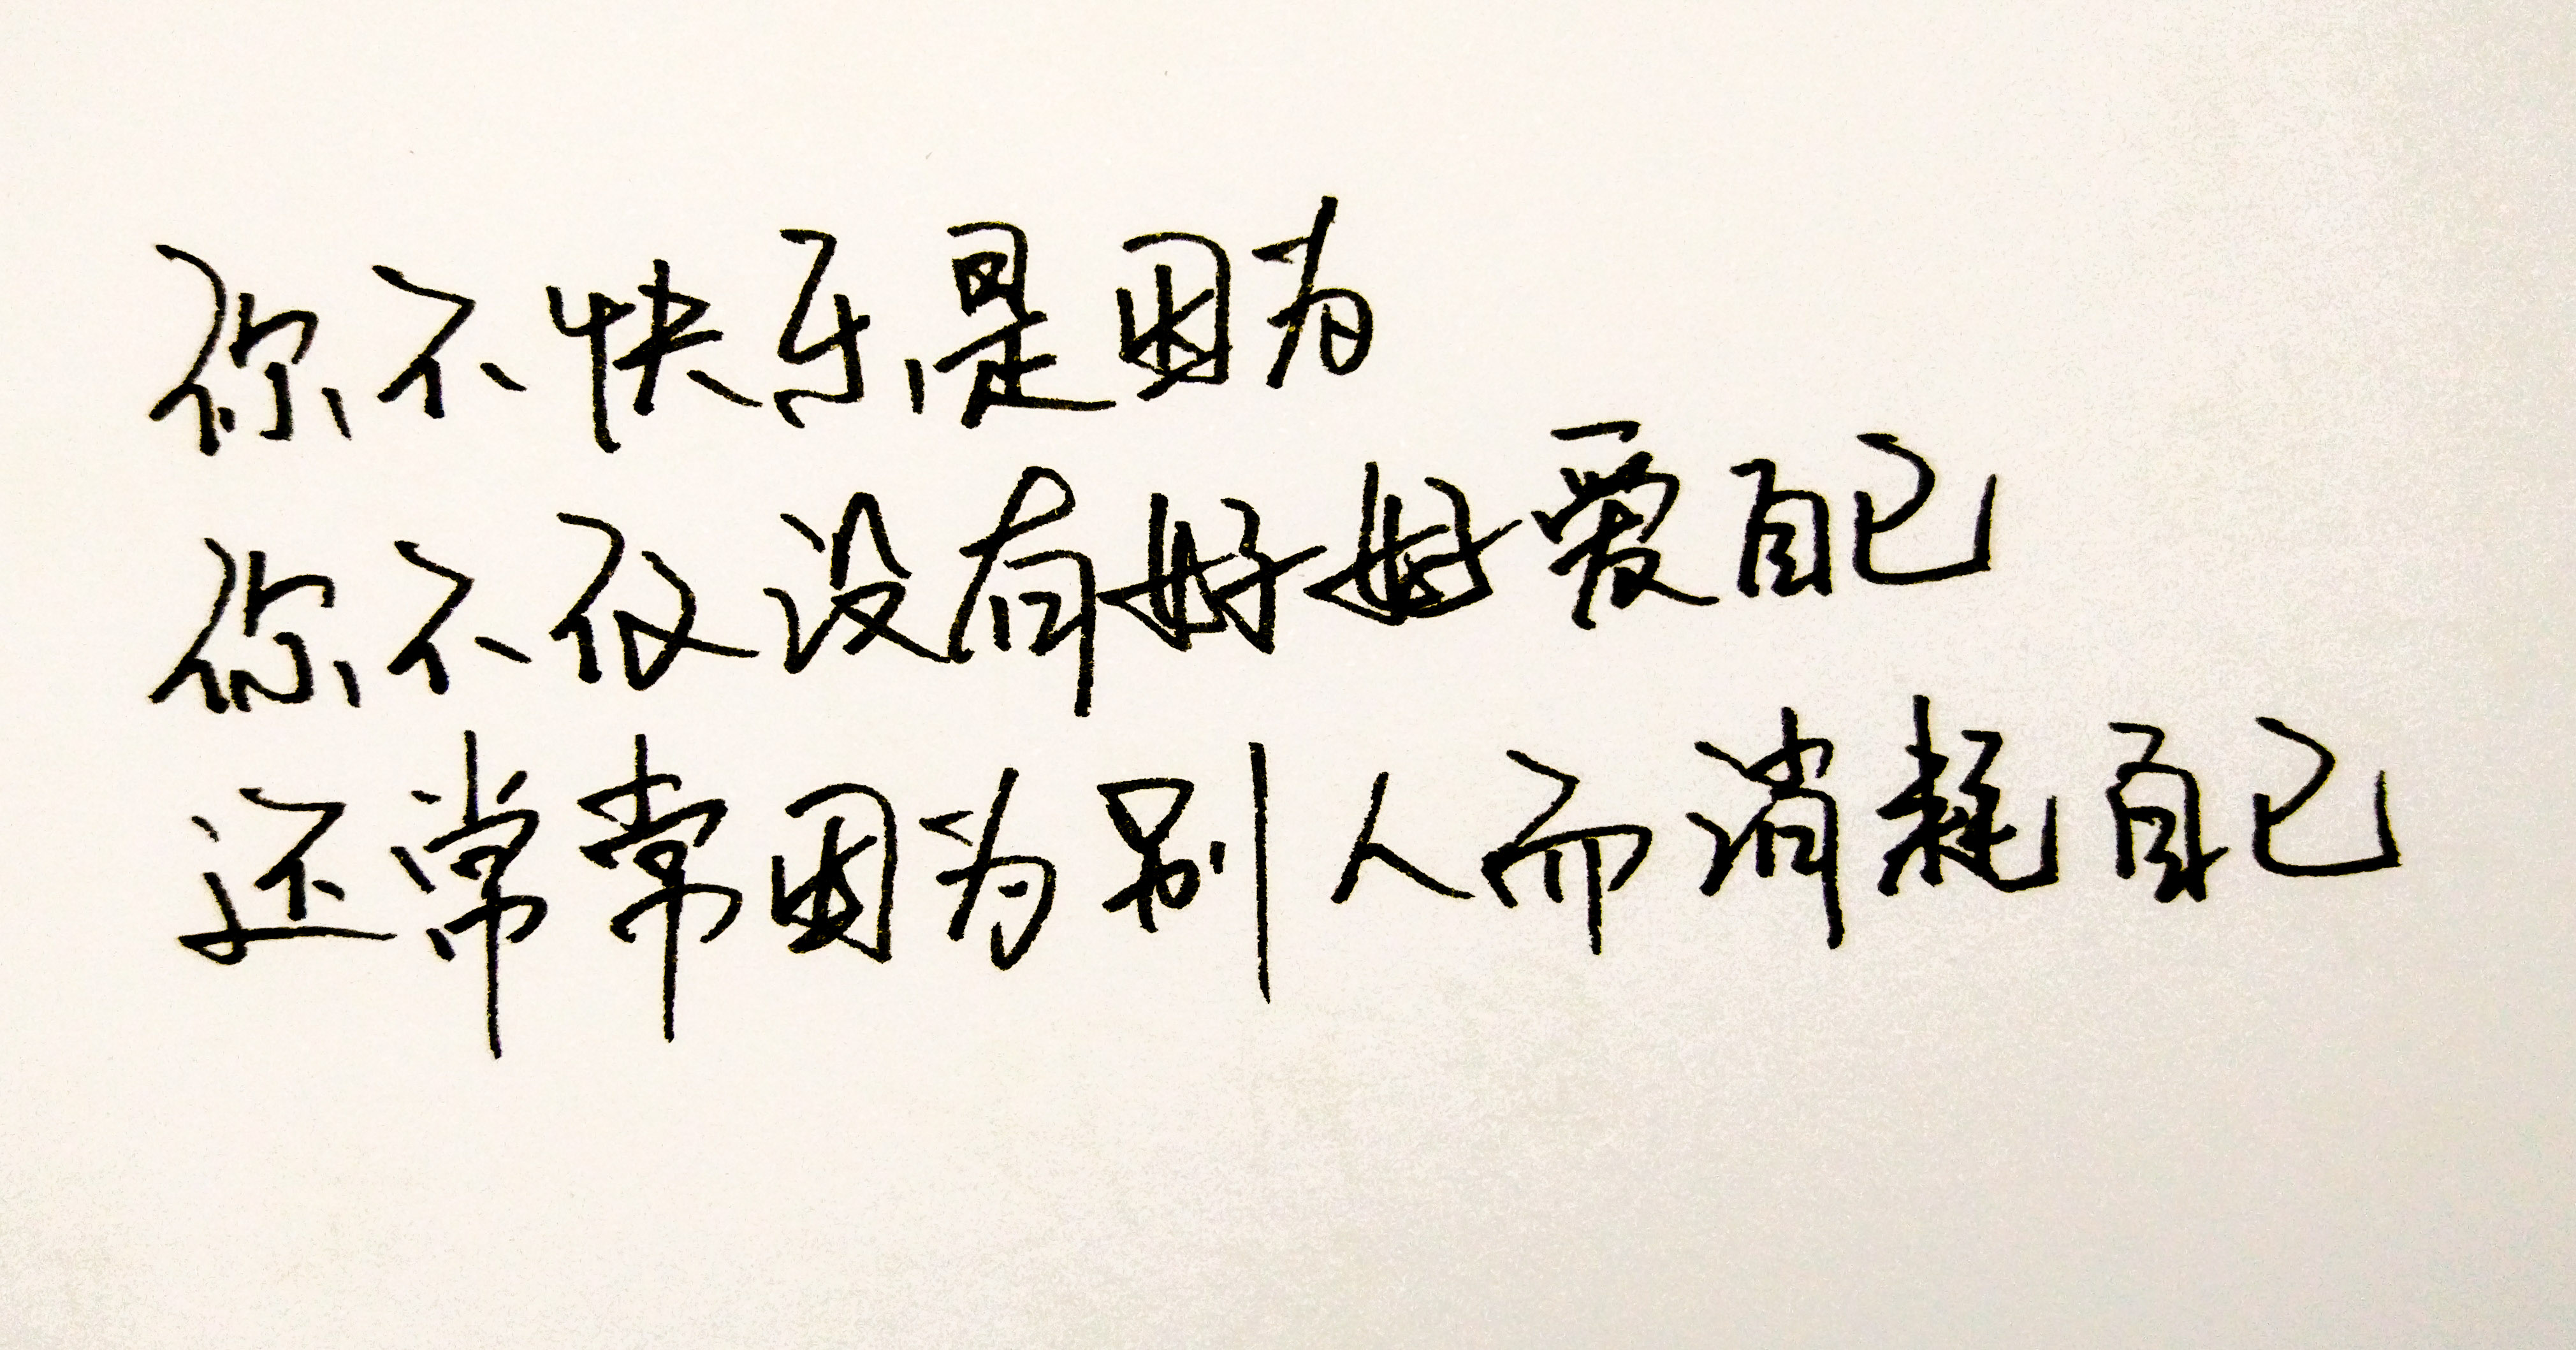 你不快乐是因为
你不仅没有好好爱自己
还常常因为别人而消耗自己